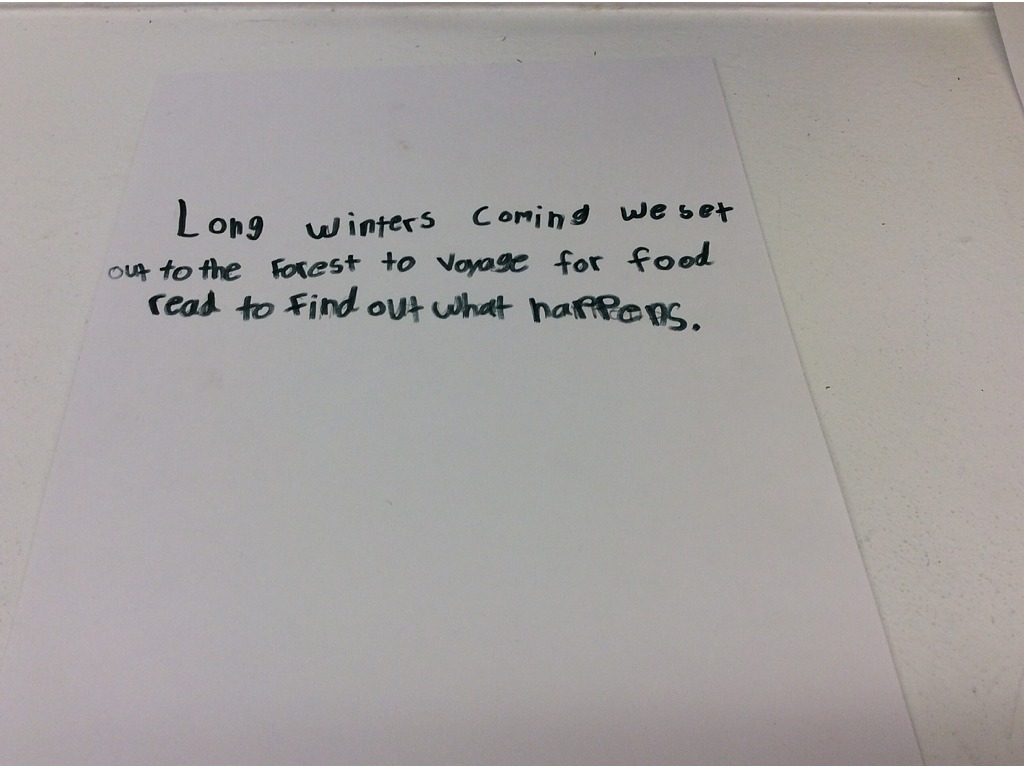 Long winters coming we set
out to the Forest to voyage for food
read to find out what happens.